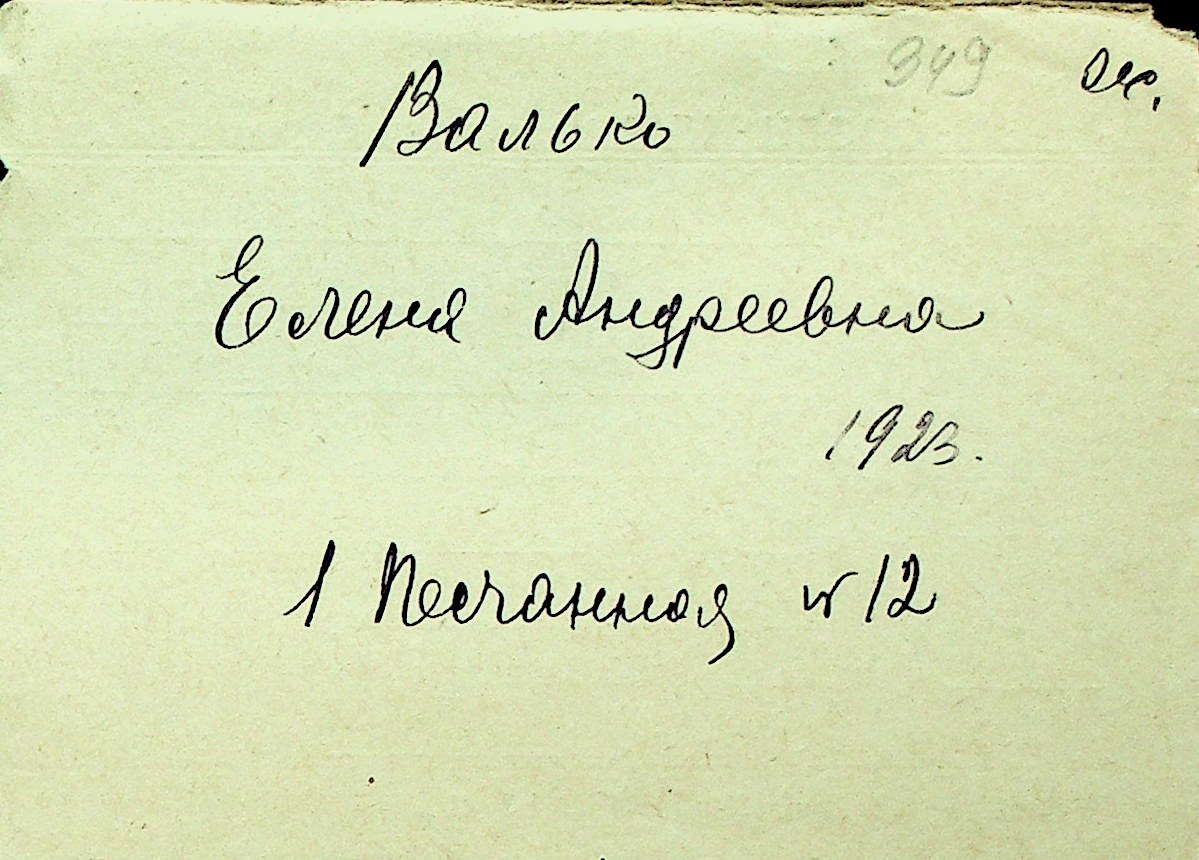 349
Валько
Елена Андреевна
1923.
1 Песчанная №12